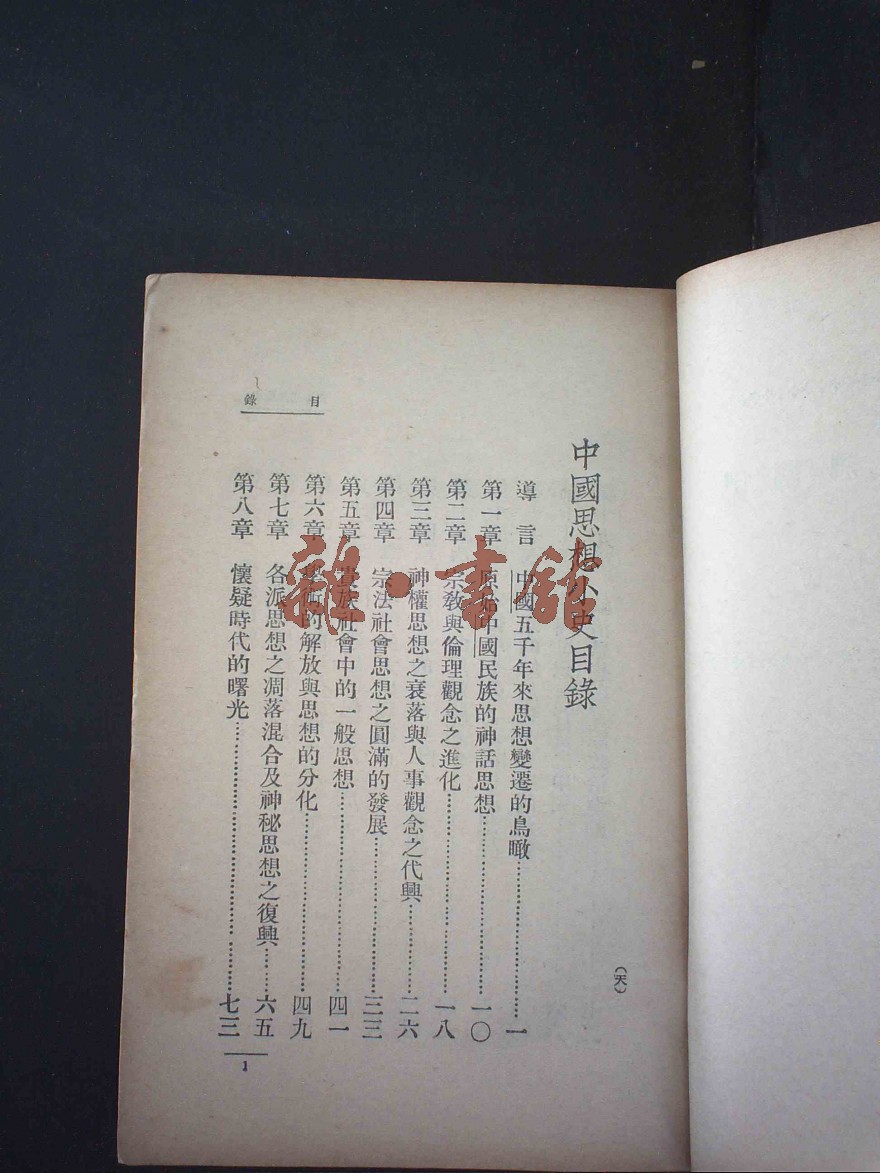 中國思想小史目錄
導言 中國五千年來思想變遷的鳥瞰……一
第一章 原始中國民族的神話思想……一〇
第二章 宗教與倫理觀念之進化……一八
第三章 神權思想之衰落與人事觀念之代興……二六
第四章 宗法社會思想之圓滿的發展……三三
第五章 貴族社會中的一般思想……四一
第六章 學術的解放與思想的分化……四九
第七章 各派思想之凋落混合及神秘思想之復興……六五
第八章 懷疑時代的曙光……七三
目錄
1
(天)
雜·書館